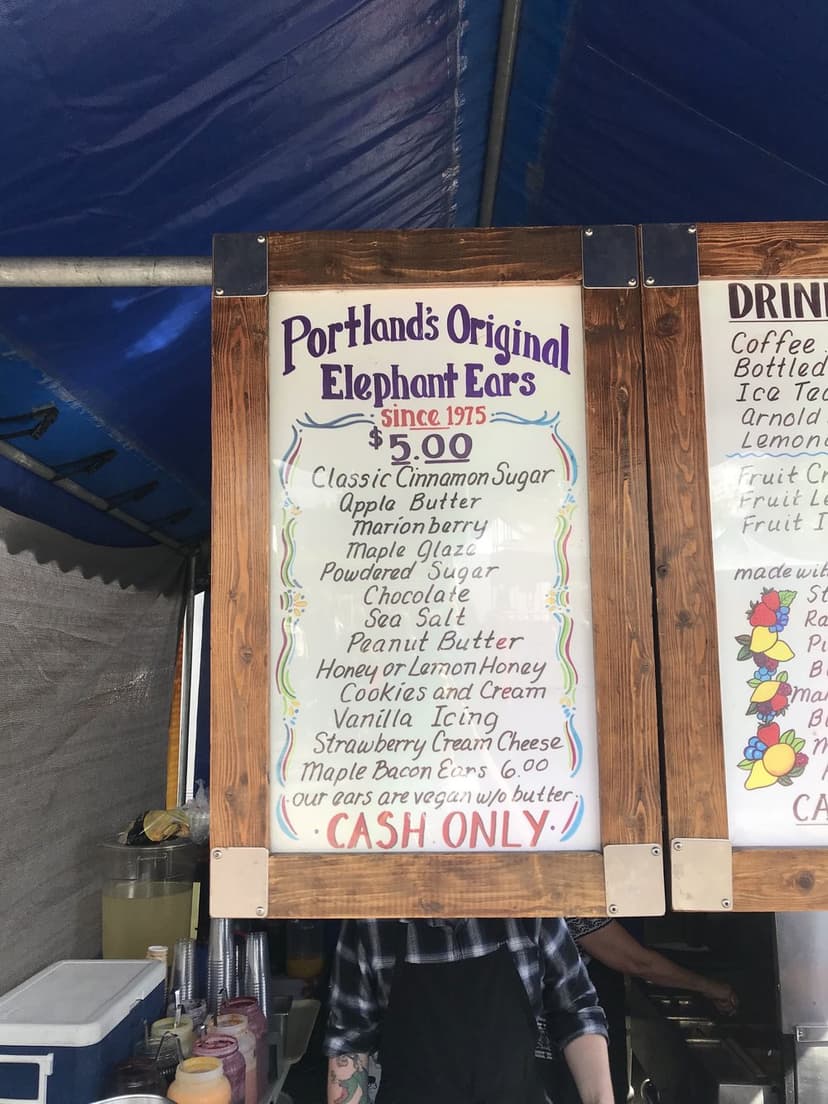 Portland's Original
Elephant Ears
since 1975
$5.00
Classic Cinnamon Sugar
Apple Butter
Marionberry
Maple Glaze
Powdered Sugar
Chocolate
Sea Salt
Peanut Butter
Honey or Lemon Honey
Cookies and Cream
Vanilla Icing
Strawberry Cream Cheese
Maple Bacon Ears 6.00
our ears are vegan w/o butter
CASH ONLY
Coffee
Bottled
Ice
Arnold
Fruit
Fruit
Fruit
made